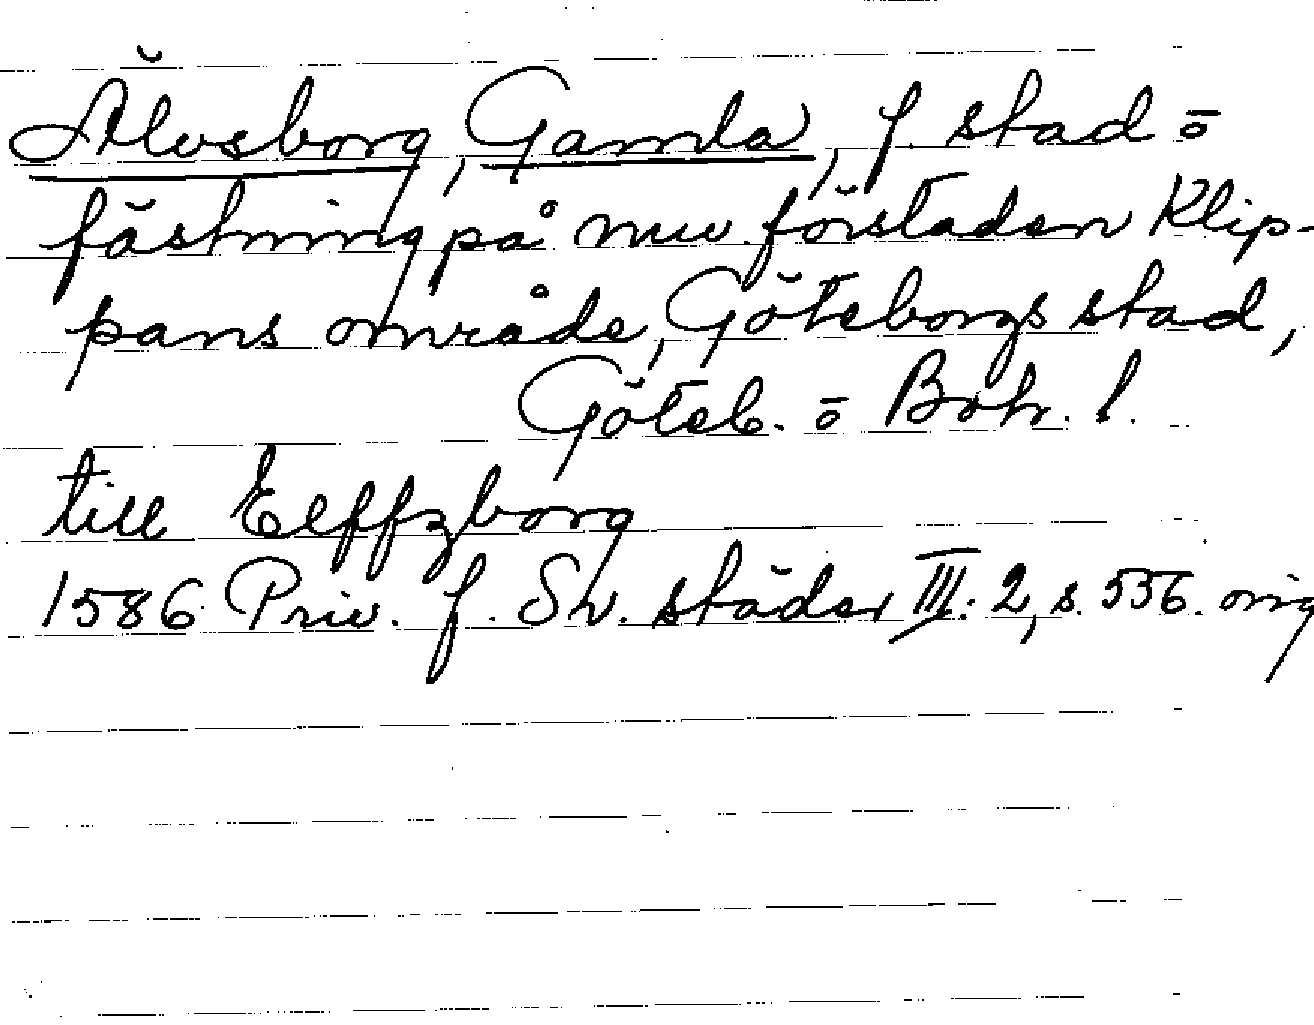 Älvsborg, Gamla, f. stad o
fästning på nuv. förstaden Klip-
pans område, Göteborgs stad,
Göteb. o Boh. l.
till Elffzborg
1586 Priv. f. Sv. städer III: 2, s. 556. orig